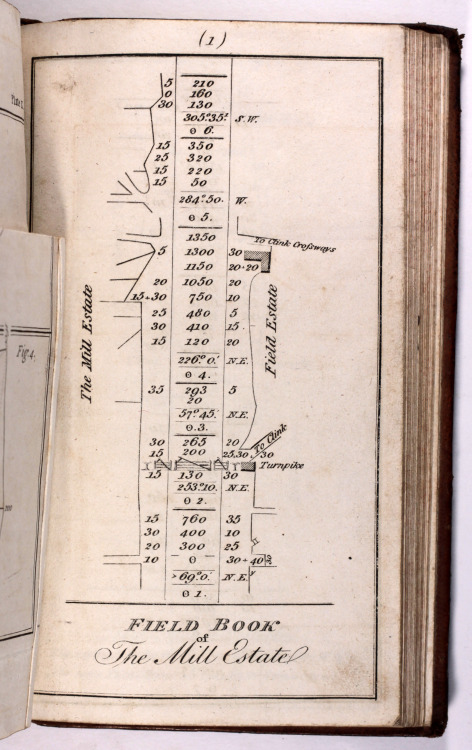 (1)
5 210
0 160
30 130
305°.35' S.W.
⊙ 6.
15 350
25 320
15 220
15 50
284°.50. W.
⊙ 5.
1350
To Clink Crossways
5 1300 30
1150 20+20
20 1050 20
15+30 750 10
25 480 5
30 410 15
15 120 20
226°.0'. N.E.
⊙ 4.
35 293 5
20
57°.45. N.E.
⊙.3.
30 265 20
To Clink
15 200 25.30. 30
Turnpike
15 130 30
253°.10. N.E.
⊙ 2.
15 760 35
30 400 10
20 300 25
10 0 30+40
>69°.0'. N.E.
⊙ 1.
The Mill Estate
Field Estate
FIELD BOOK
of
The Mill Estate
Fig.4.